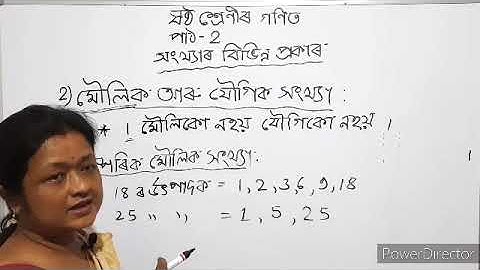 ষষ্ঠ শ্ৰেণীৰ গণিত
পাঠ-2
সংখ্যাৰ বিভিন্ন প্ৰকাৰ
2) মৌলিক আৰু যৌগিক সংখ্যা :
* 1 মৌলিকো নহয় যৌগিকো নহয় ।
মৌলিক সংখ্যা:
18 ৰ উৎপাদক = 1, 2, 3, 6, 9, 18
25 " " = 1, 5, 25
PowerDirector